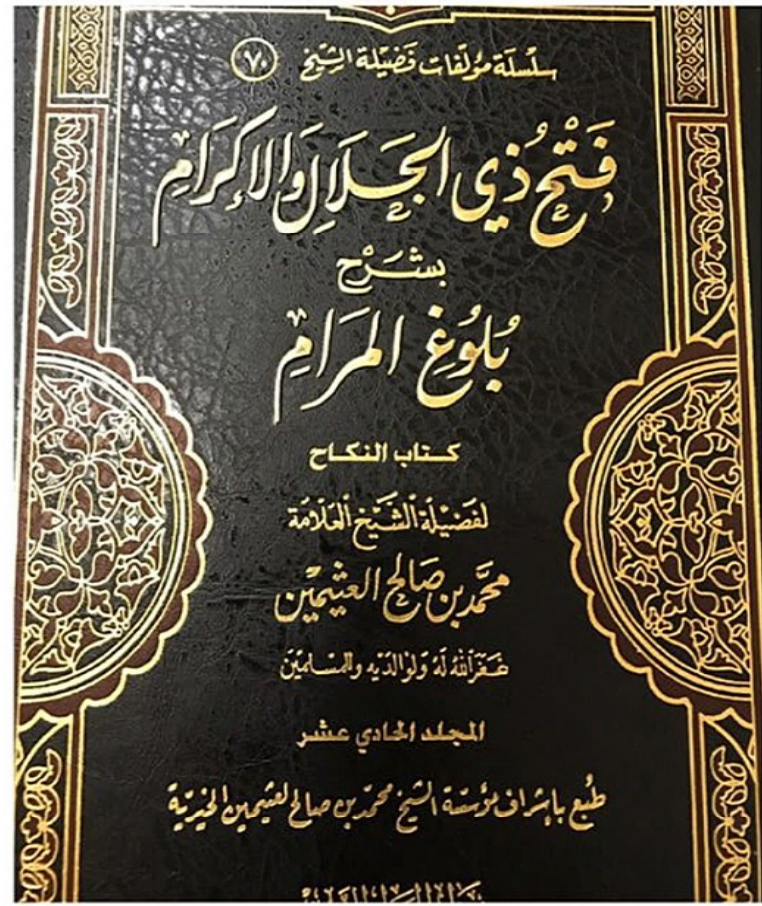 سلسلة مؤلفات فضيلة الشيخ ٧٠
فَتْحُ ذِي الجَلَالِ وَالإِكْرَامِ
بِشَرْحِ
بُلُوغِ المَرَامِ
كتاب النكاح
لفَضِيلَة الشَّيْخ العَلَّامَة
محمَّد بن صَالح العثيمين
غفَرَ اللهُ لَهُ وَلِوَالدَيْهِ وَالمُسْلِميْن
المجلد الحادي عشر
طُبِعَ بإشراف مؤسّسَة الشيخ محمّد بن صالح العثيمين الخيريّة